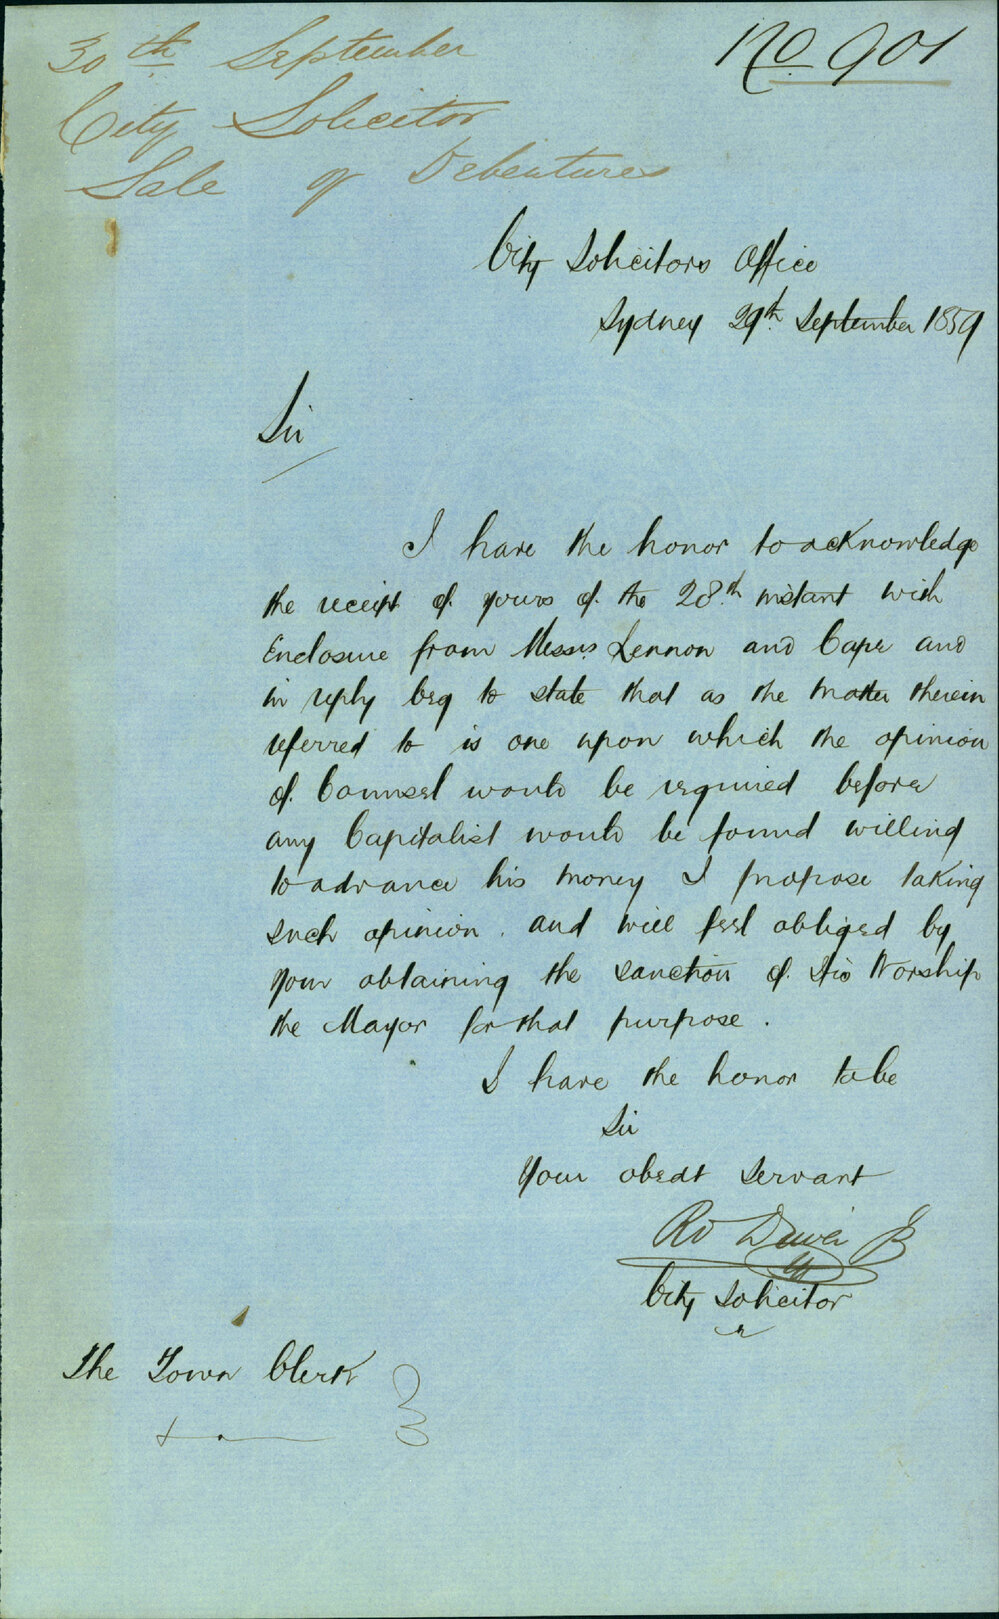 30th September
No 901
City Solicitor
Sale of Debentures
City Solicitors Office
Sydney 29th September 1859
Sir
I have the honor to acknowledge
the receipt of yours of the 28th instant with
Enclosure from Messrs Lennon and Cape and
in reply beg to state that as the matter therein
referred to is one upon which the opinion
of Counsel would be required before
any Capitalist would be found willing
to advance his money I propose taking
such opinion and will feel obliged by
your obtaining the sanction of His Worship
the Mayor for that purpose.
I have the honor to be
Sir
Your obedt Servant
City Solicitor
The Town Clerk